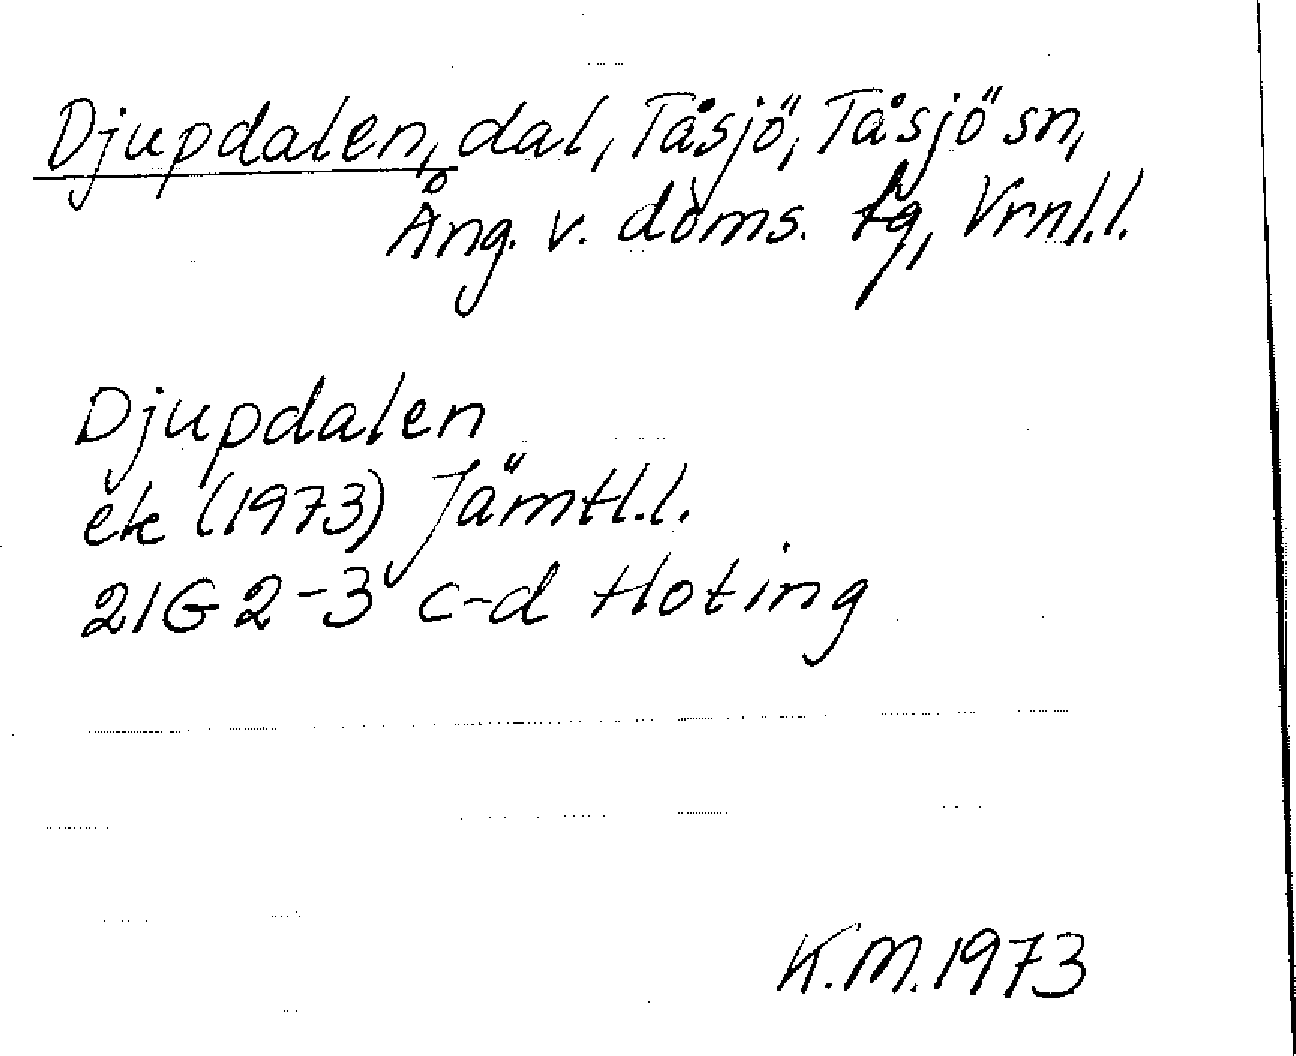 Djupdalen, dal, Tåsjö, Tåsjö sn,
Ång. v. doms. fg, Vrnl.l.
Djupdalen
ek (1973) Jämtl.l.
21G 2-3 c-d Hoting
K.M. 1973